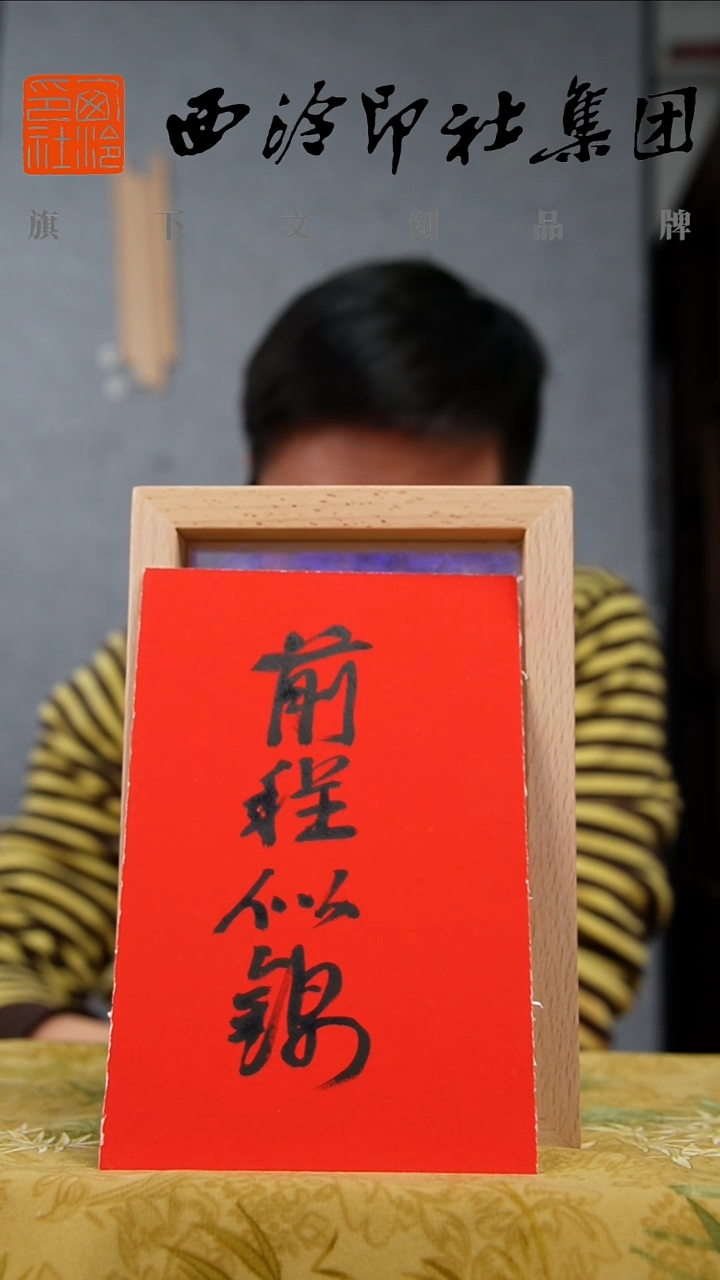 西泠印社
西泠印社集团
旗下文创品牌
前程似锦